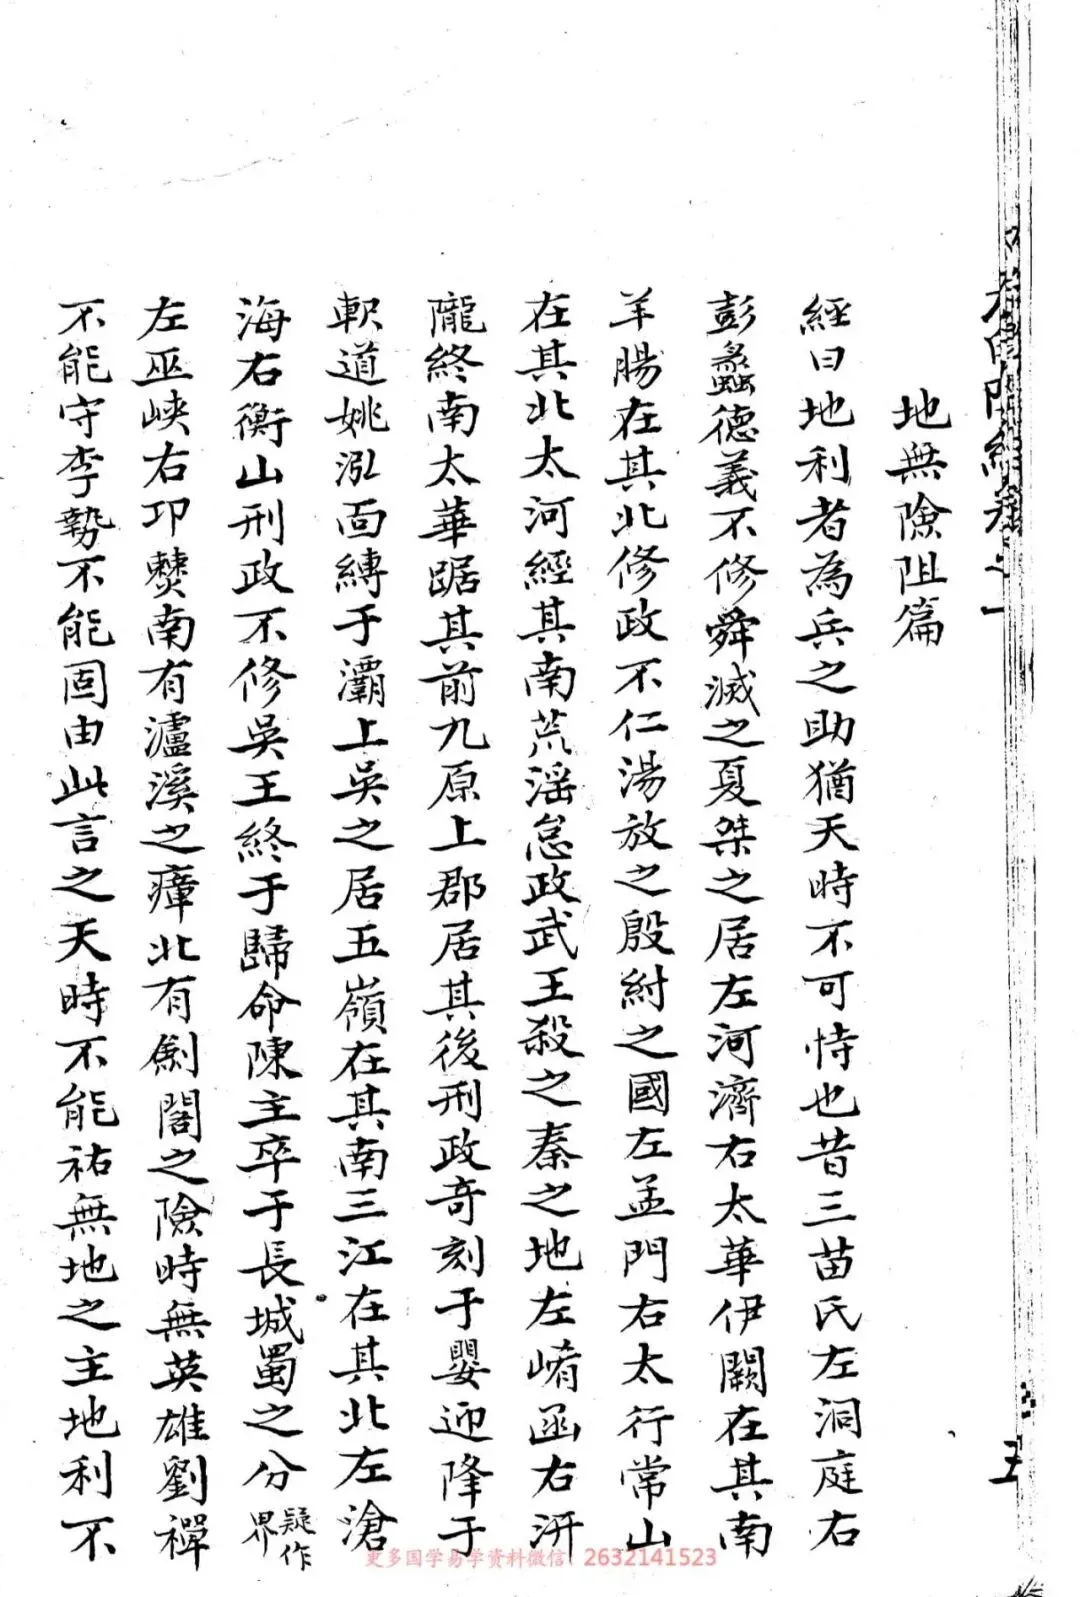 地無險阻篇
經曰地利者為兵之助猶天時不可恃也昔三苗氏左洞庭右
彭蠡德義不修舜滅之夏桀之居左河濟右太華伊闕在其南
羊腸在其北修政不仁湯放之殷紂之國左孟門右太行常山
在其北太河經其南荒滛怠政武王殺之秦之地左崤函右汧
隴終南太華踞其前九原上郡居其後刑政奇刻于嬰迎降于
軹道姚泓面縛于灞上吳之居五嶺在其南三江在其北左滄
海右衡山刑政不修吳王終于歸命陳主卒于長城蜀之分疑作界
左巫峽右邛僰南有瀘溪之瘴北有劍閣之險時無英雄劉禪
不能守李勢不能固由此言之天時不能祐無地之主地利不
更多国学易学资料微信 2632141523